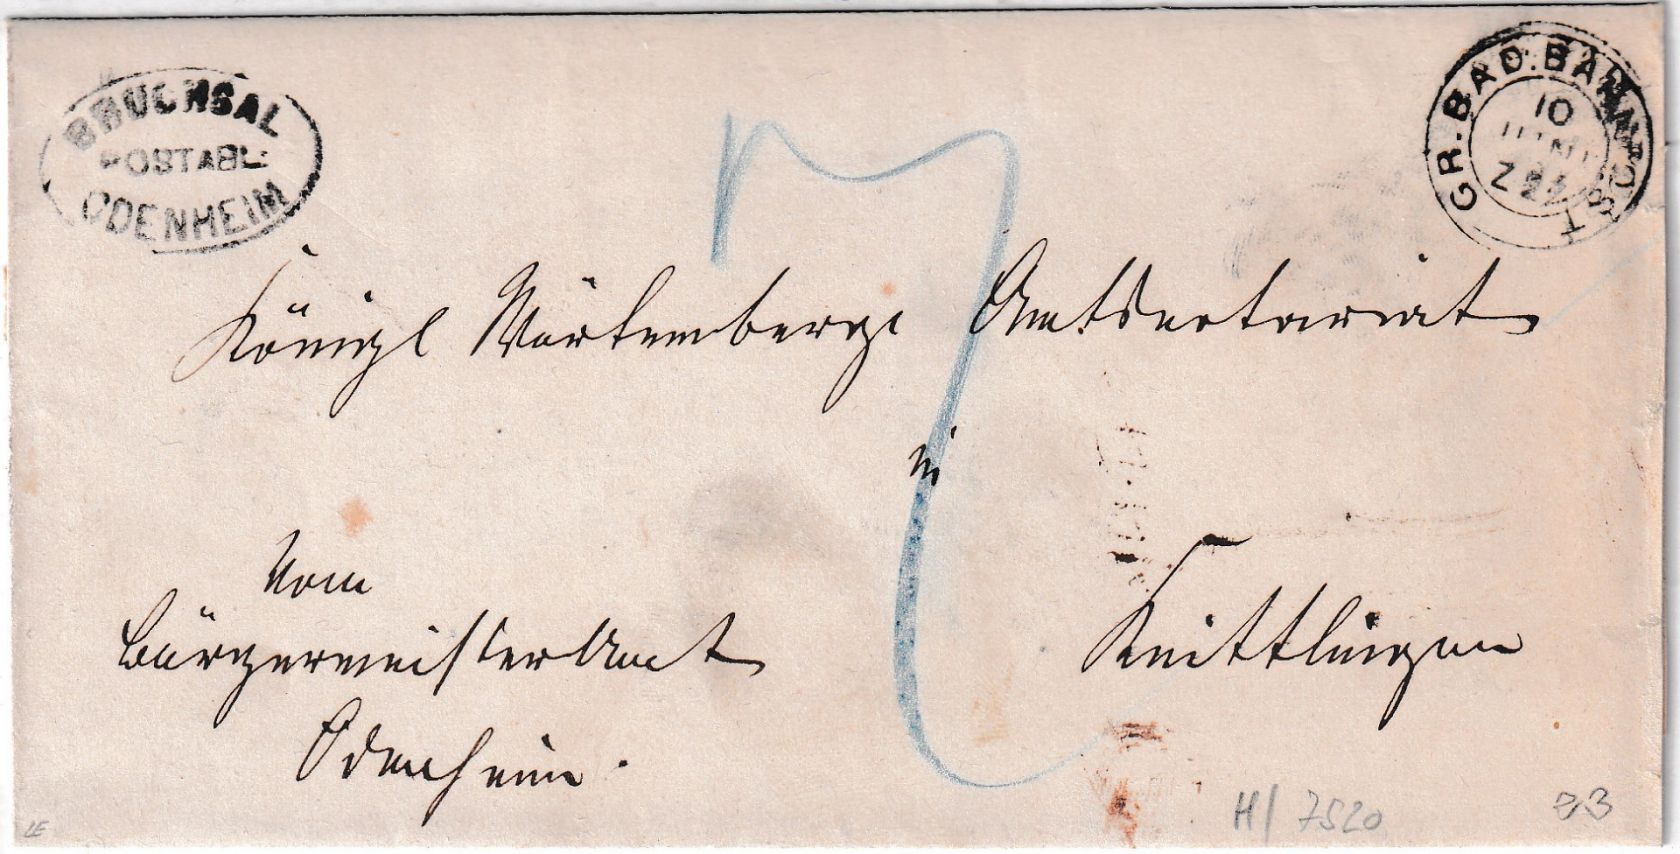 BRUCHSAL
POSTABL:
ODENHEIM
GR. BAD. BAHNPOST
10
JUNI
Z 23
7
Königl Würtemberg Amtsnotariat
in
Knittlingen
Vom
Bürgermeister Amt
Odenheim.
H/ 7520
LE